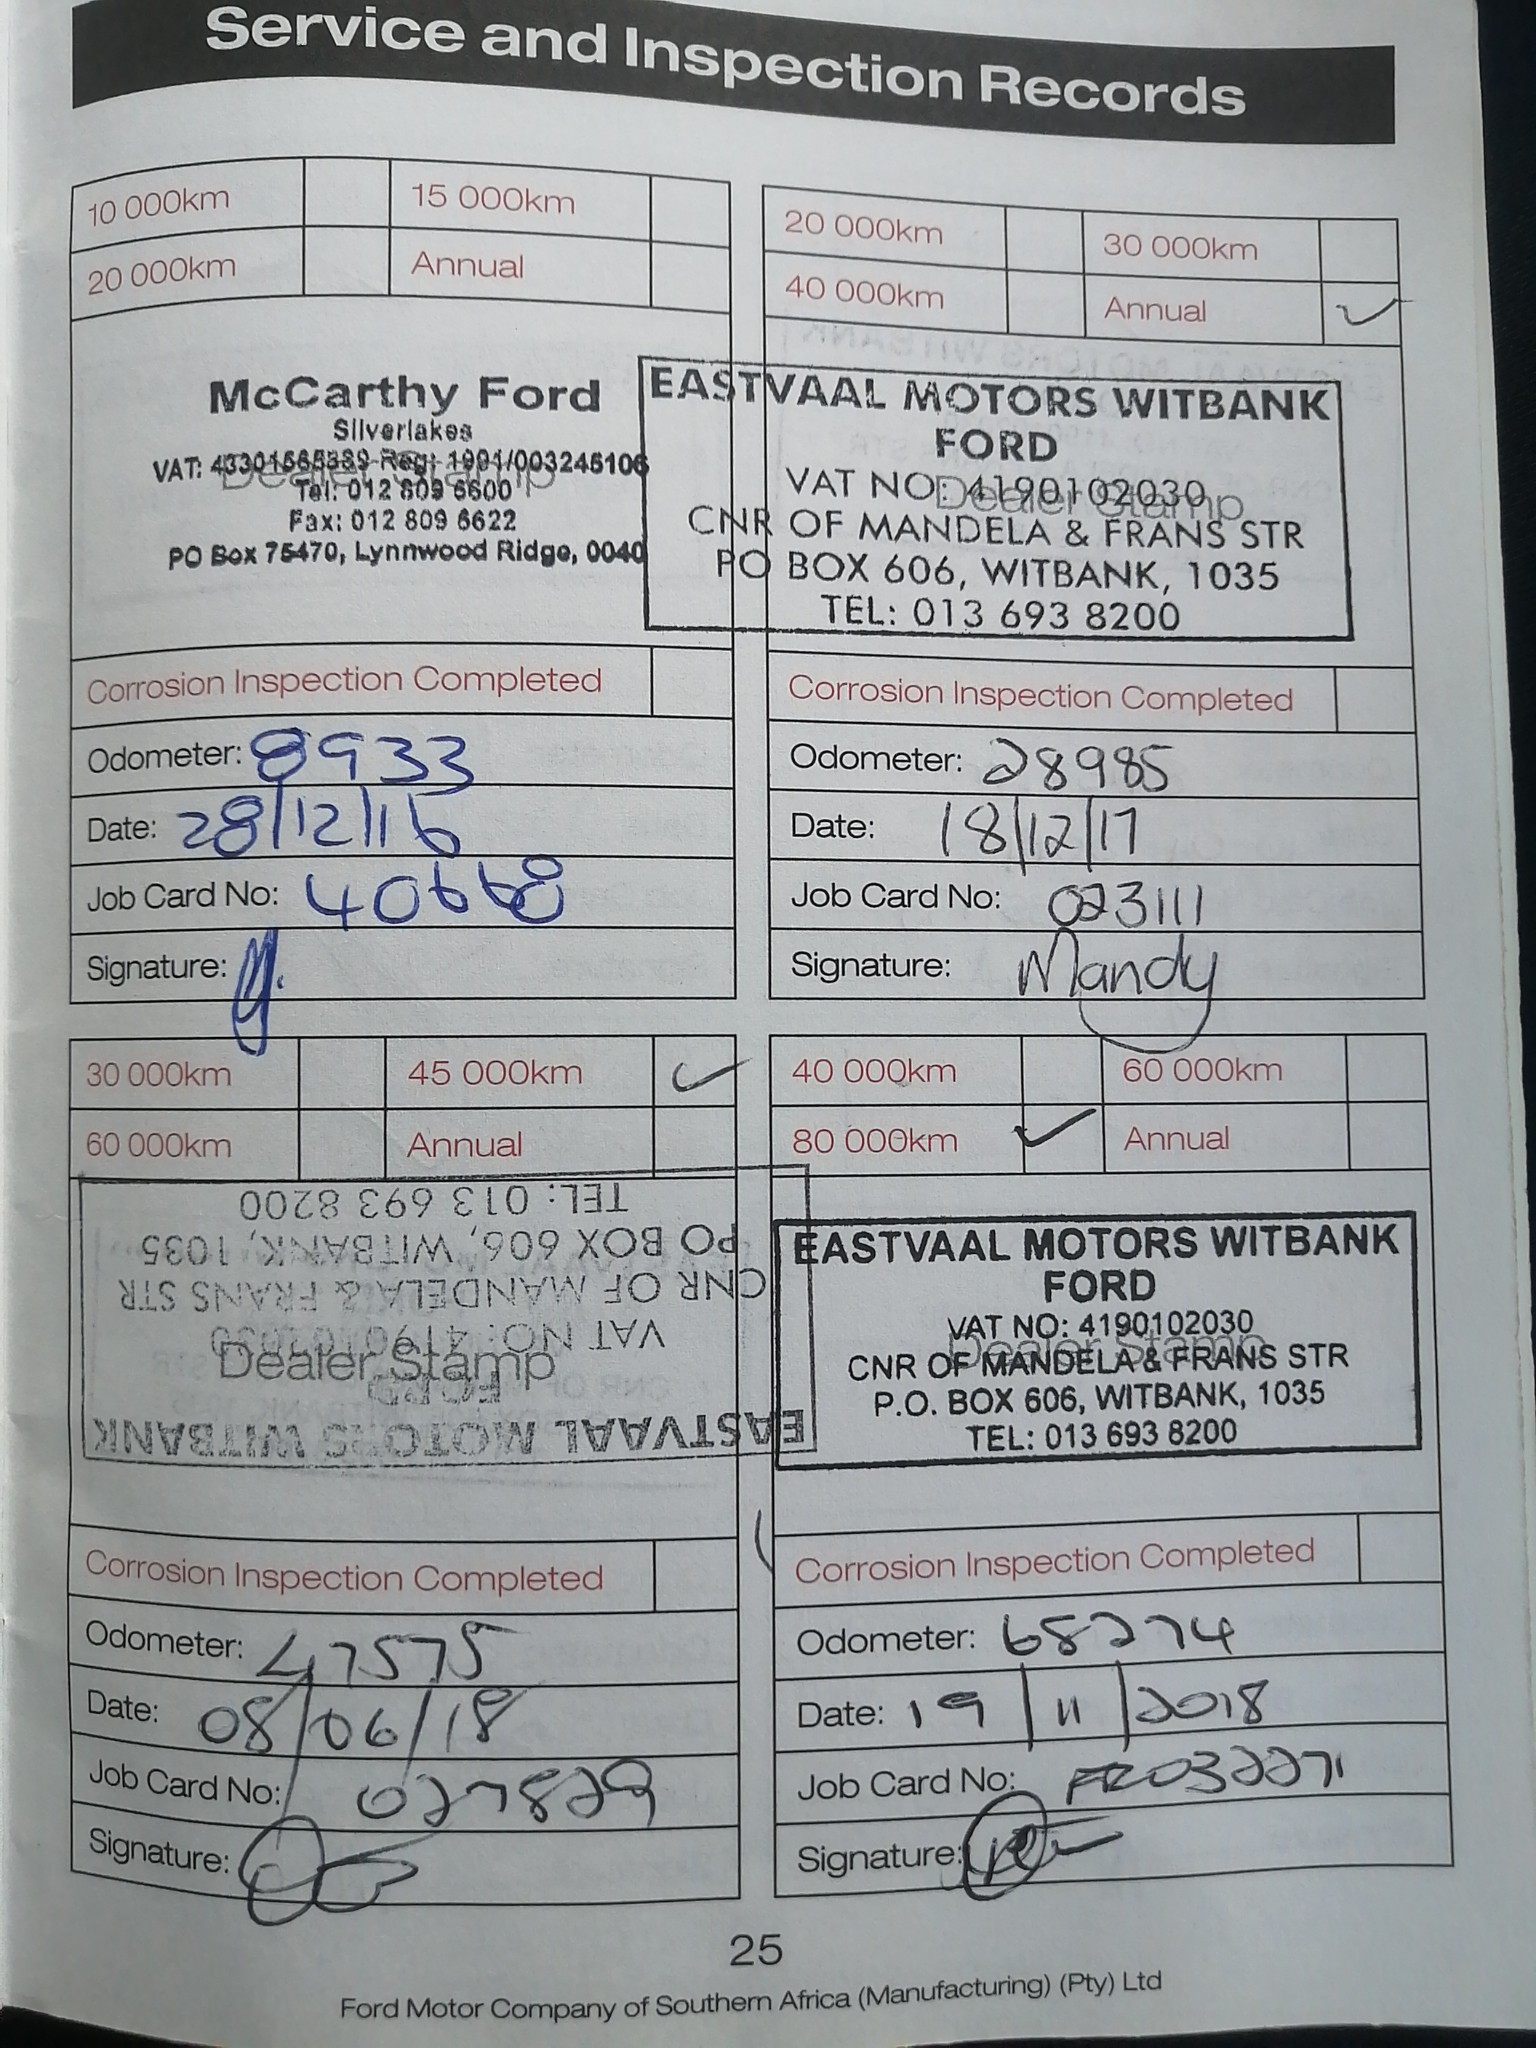 Service and Inspection Records
10 000km 15 000km
20 000km Annual
McCarthy Ford
Silverlakes
Dealer Stamp
Tel: 012 809 6600
Fax: 012 809 6622
PO Box 75470, Lynnwood Ridge, 0040
Corrosion Inspection Completed
Odometer: 8933
Date: 28/12/16
Job Card No: 40668
Signature:
20 000km 30 000km
40 000km Annual ✓
EASTVAAL MOTORS WITBANK
FORD
VAT NO: 4190102030
Dealer Stamp
CNR OF MANDELA & FRANS STR
PO BOX 606, WITBANK, 1035
TEL: 013 693 8200
Corrosion Inspection Completed
Odometer: 28985
Date: 18/12/17
Job Card No: 023111
Signature: Mandy
30 000km 45 000km ✓
60 000km Annual
EASTVAAL MOTORS WITBANK
FORD
VAT NO: 4190102030
Dealer Stamp
CNR OF MANDELA & FRANS STR
PO BOX 606, WITBANK, 1035
TEL: 013 693 8200
Corrosion Inspection Completed
Odometer: 47575
Date: 08/06/18
Job Card No: 027829
Signature:
40 000km 60 000km
80 000km ✓ Annual
EASTVAAL MOTORS WITBANK
FORD
VAT NO: 4190102030
Dealer Stamp
CNR OF MANDELA & FRANS STR
P.O. BOX 606, WITBANK, 1035
TEL: 013 693 8200
Corrosion Inspection Completed
Odometer: 68274
Date: 19/11/2018
Job Card No: FR032271
Signature:
25
Ford Motor Company of Southern Africa (Manufacturing) (Pty) Ltd